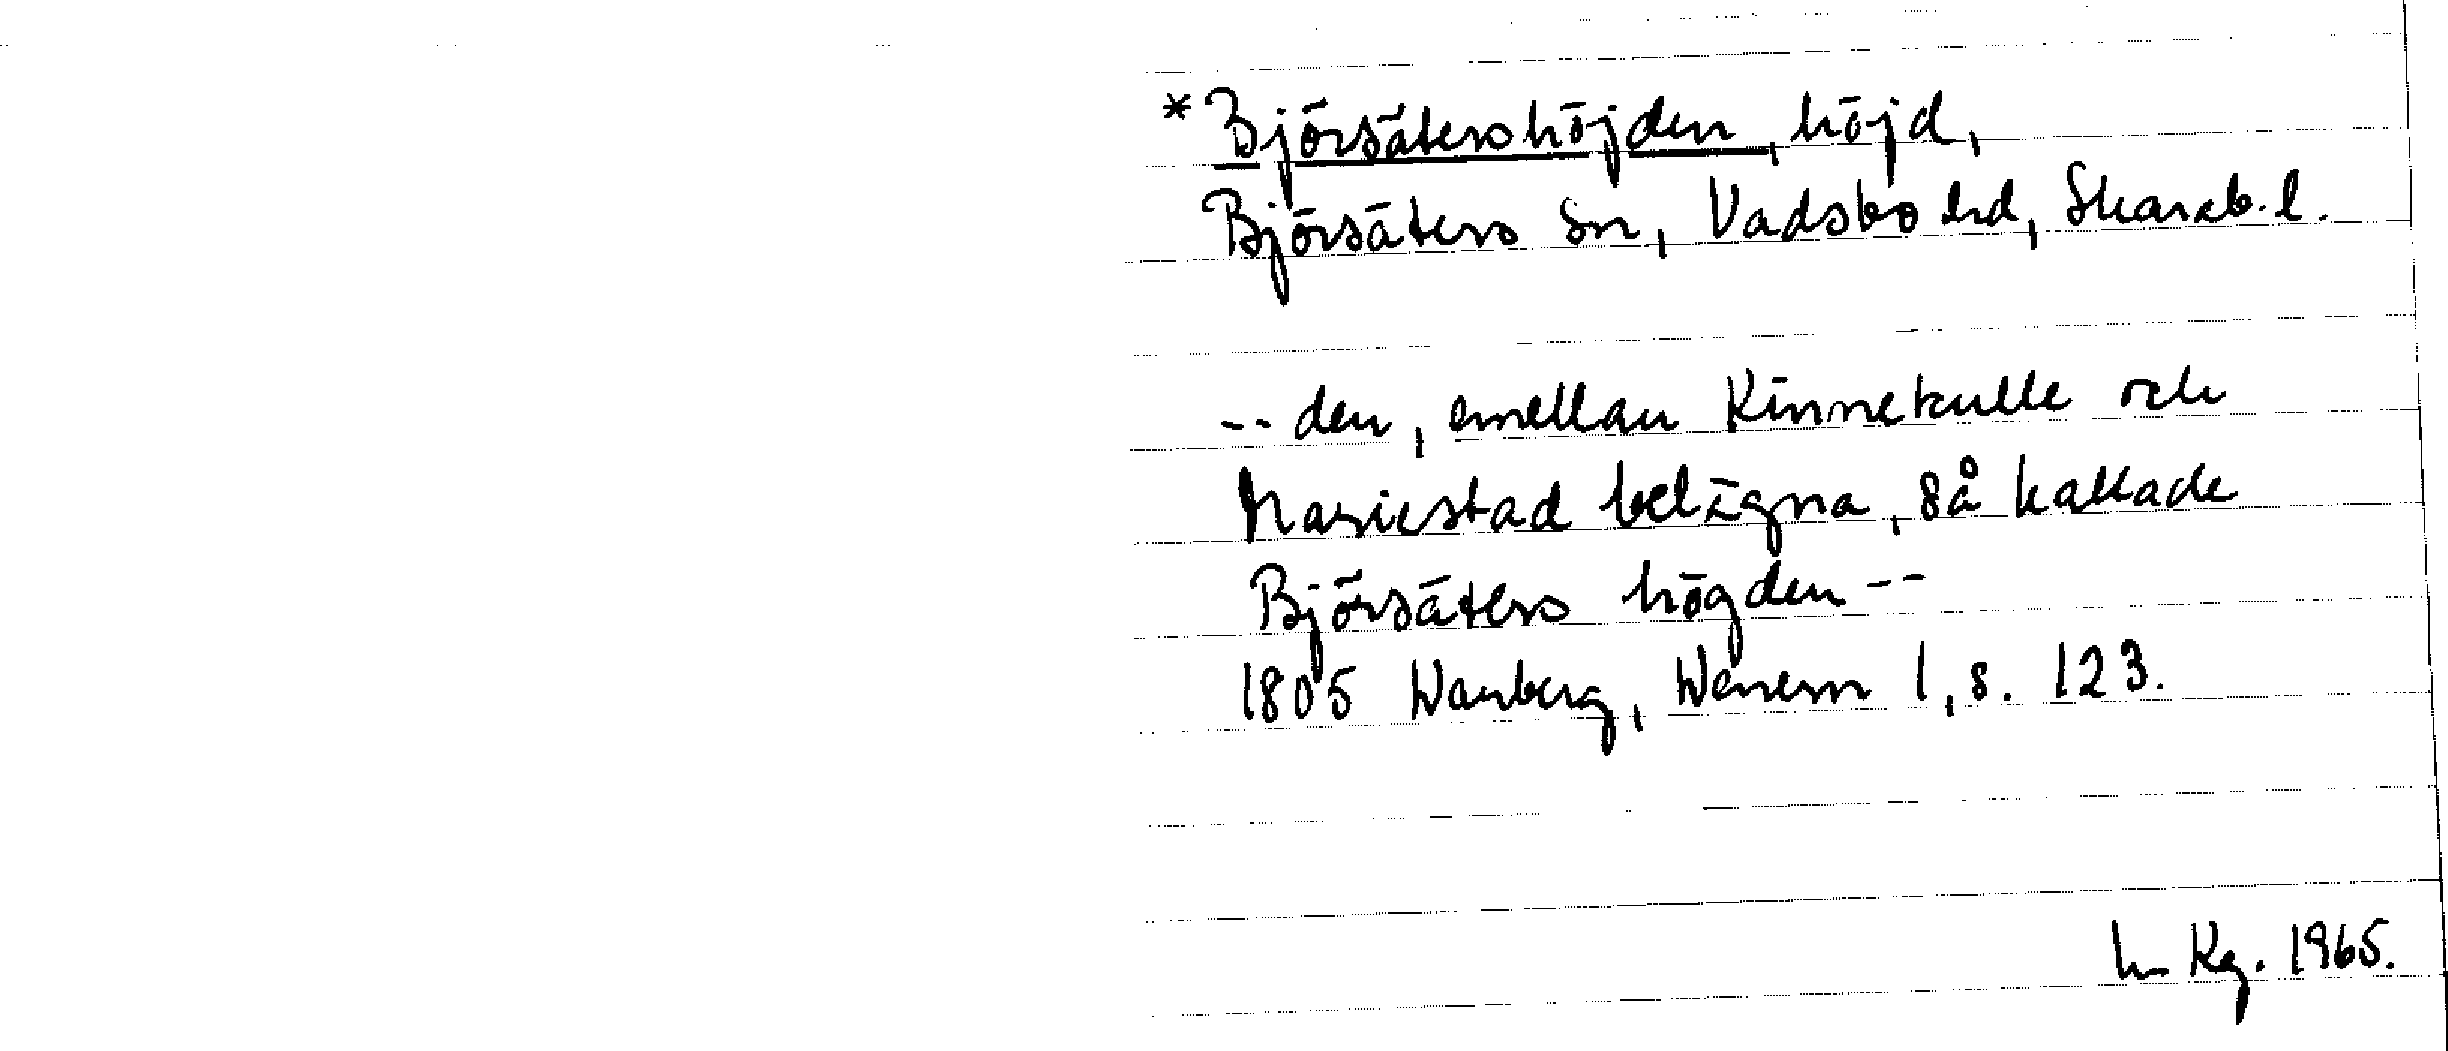 *Björsätershöjden, höjd,
Björsäters sn, Vadsbo hd, Skarab. l.
-- den, emellan Kinnekulle och
Mariestad belägna, så kallade
Björsäters högden --
1805 Warberg, Wenern 1, s. 123.
Kg. 1965.